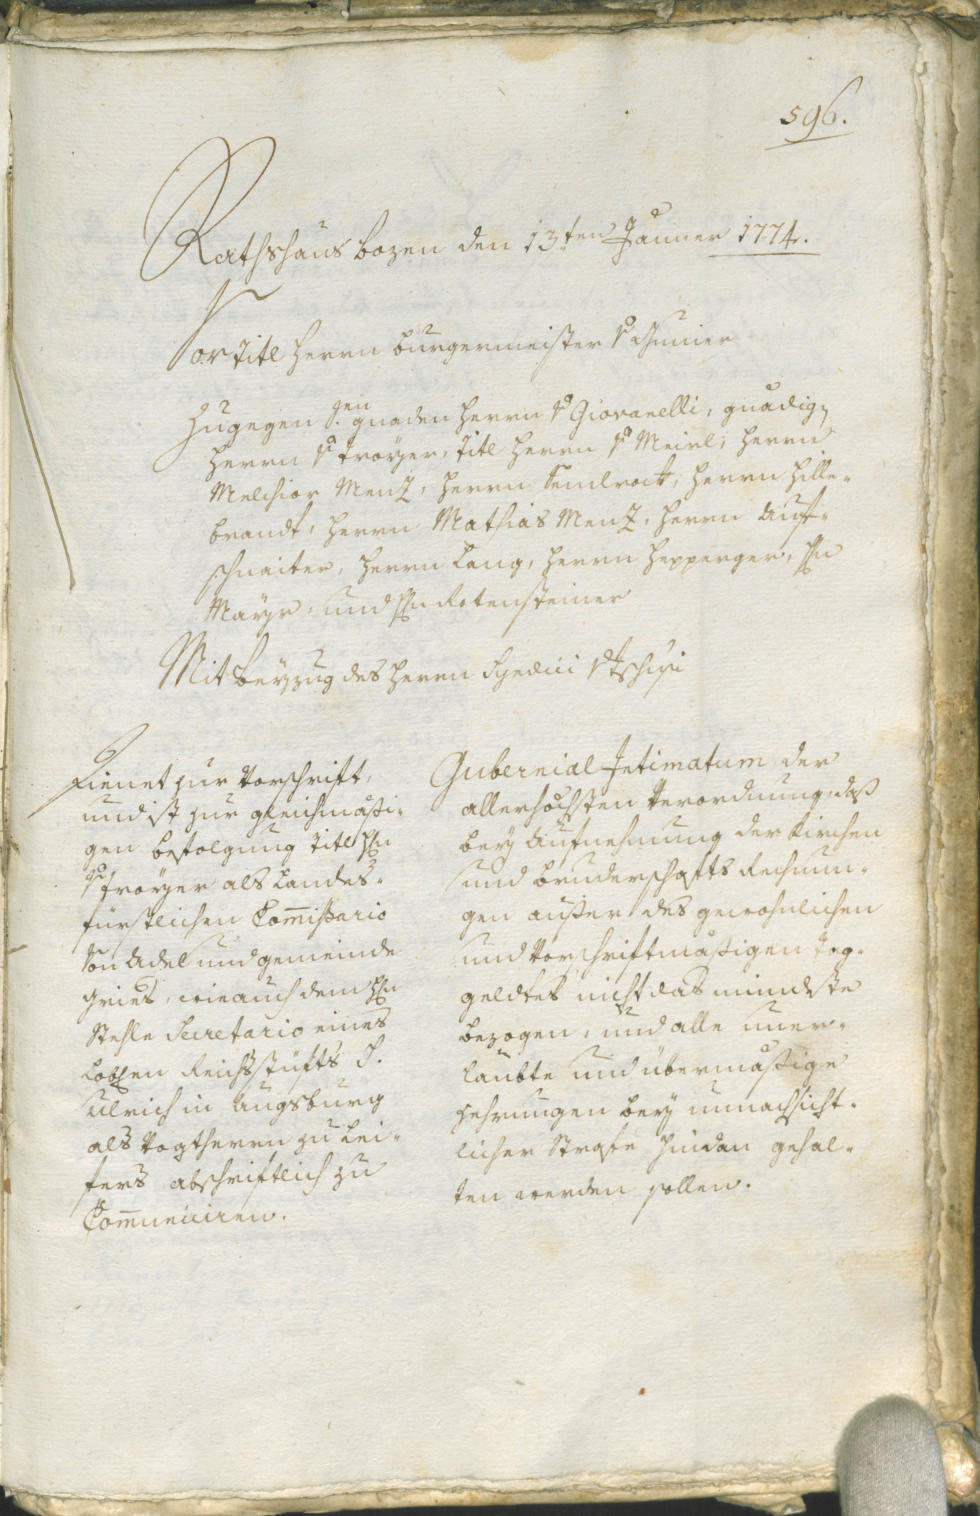 596.
Rathshaus Bozen den 13.ten Jänner 1774.
Vor Titl Herrn Burgermeister v
Zugegen gnaden Herrn v Giovanelli, gnädig
Herrn v Troyer, Titl Herrn v Meirl, Herrn
Melchior Menz, Herrn Herrn Hille-
brandt, Herrn Mathias Menz, Herrn Auf-
schnaiter, Herrn Lang, Herrn Hepperger, Hrn
Mayr, und Hrn Rotensteiner
Mit Beyzug des Herrn v Tschusi
Dienet zur Vorschrift,
und ist zur gleichmäßi-
gen befolgung Titl Hrn
v Troyer als Landes-
fürstlichen Com̄ißario
von Adel und gemeinde
Gries, wie auch dem Hrn
Stehle Secretario eines
Lobl.en Reichsstüfts S.
Ulrich in Augsburg
als Vogtherrn zu Lei-
fers abschriftlich zu
Com̄uniciren.
Gubernial Intimatum der
allerhöchsten Verordnung, daß
bey Aufnehmung der Kirchen
und Bruderschafts Rechnun-
gen außer des gewohnlichen
und Vorschriftmäßigen Tag-
geldtes nicht das mindeste
bezogen, und alle uner-
laubte und übermäßige
Zehrungen bey unnachsicht-
licher Strafe hindan gehal-
ten werden sollen.